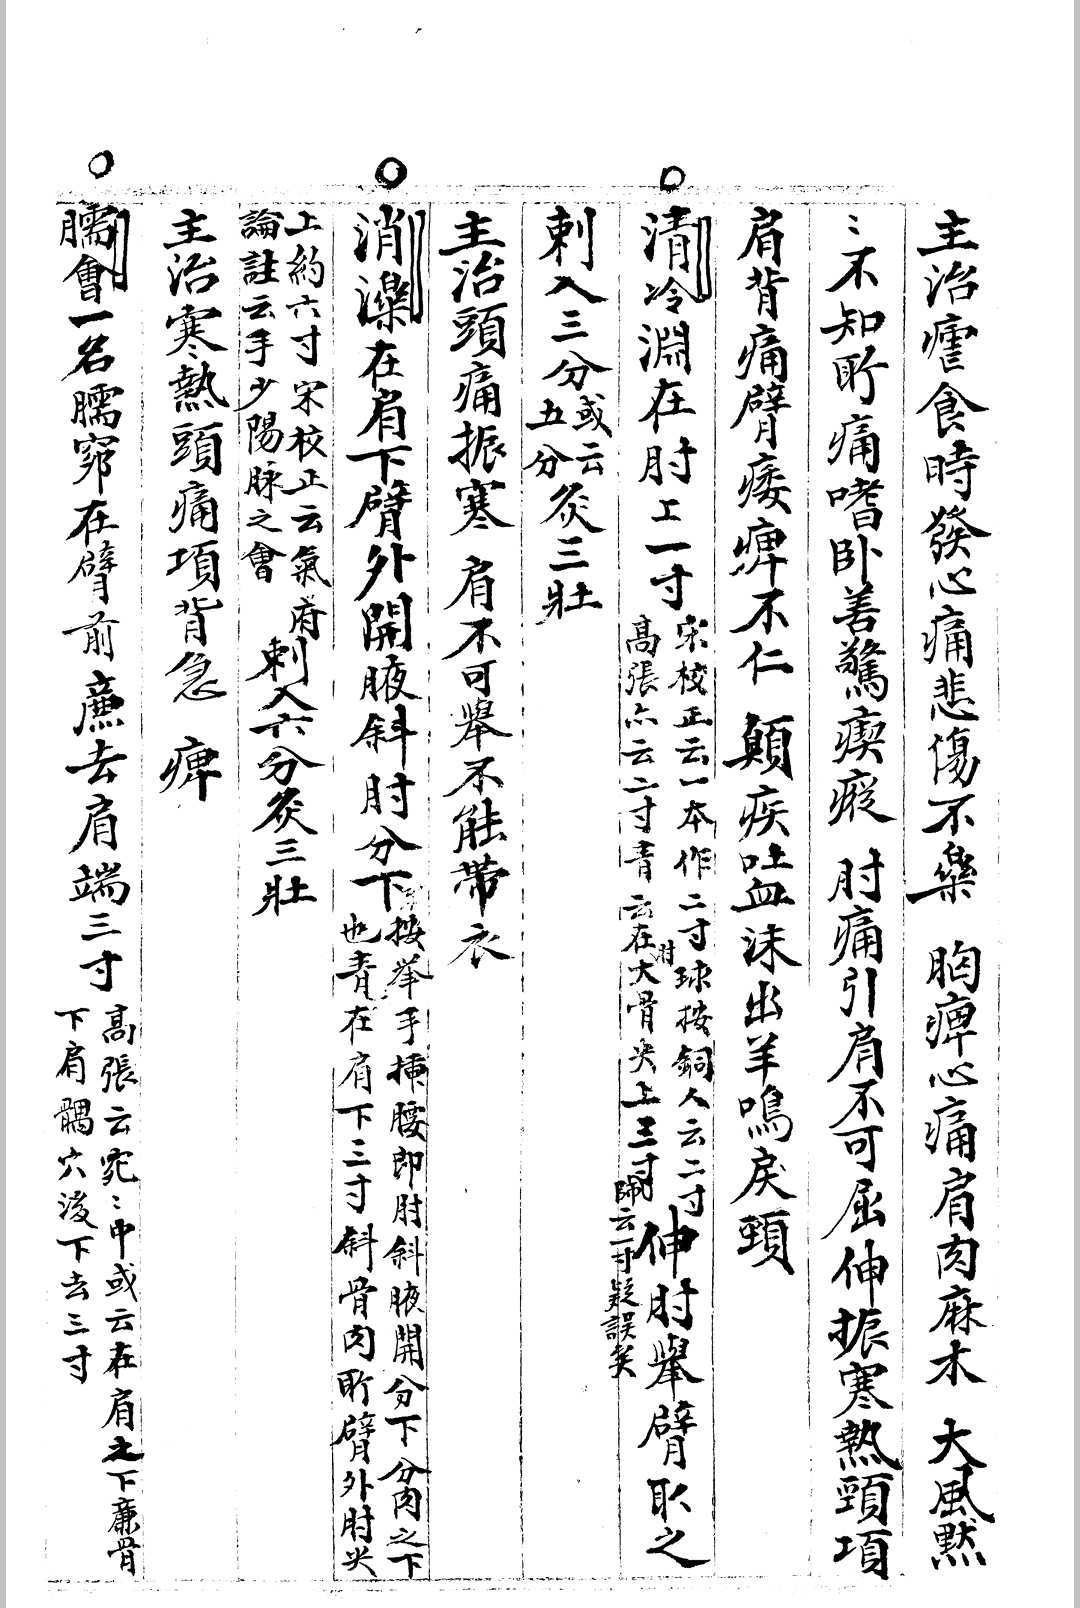 主治瘧食時發心痛悲傷不樂 胸痺心痛肩肉麻木 大風默
〻不知所痛嗜卧善驚瘈瘲 肘痛引肩不可屈伸振寒熱頸項
肩背痛臂痿痺不仁 顛疾吐血沫出羊鳴戾頸
○清冷淵在肘上一寸
宋校正云一本作二寸球按銅人云二寸
高張亦云二寸青云在肘大骨尖上三寸
歸云一寸疑誤矣
伸肘舉臂取之
刺入三分
或云
五分
灸三壯
主治頭痛振寒 肩不可舉不能帶衣
○消濼在肩下臂外開腋斜肘分下
按挙手揷腰即肘斜腋開分下分肉之下
也青在肩下三寸斜骨肉所臂外肘尖
上約六寸宋校正云氣府
論註云手少陽脉之會
刺入六分灸三壯
主治寒熱頭痛項背急 痺
○臑會一名臑窌在臂前廉去肩端三寸
高張云宛〻中或云在肩之下廉骨
下肩髃穴後下去三寸